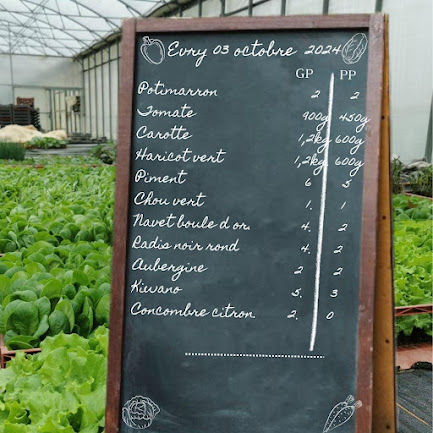 Evry 03 octobre 2024
GP PP
Potimarron 2 2
Tomate 900g 450g
Carotte 1,2kg 600g
Haricot vert 1,2kg 600g
Piment 6 3
Chou vert 1. 1
Navet boule d or. 4. 2
Radis noir rond 4. 2
Aubergine 2 2
Kiwano 5. 3
Concombre citron 2. 0